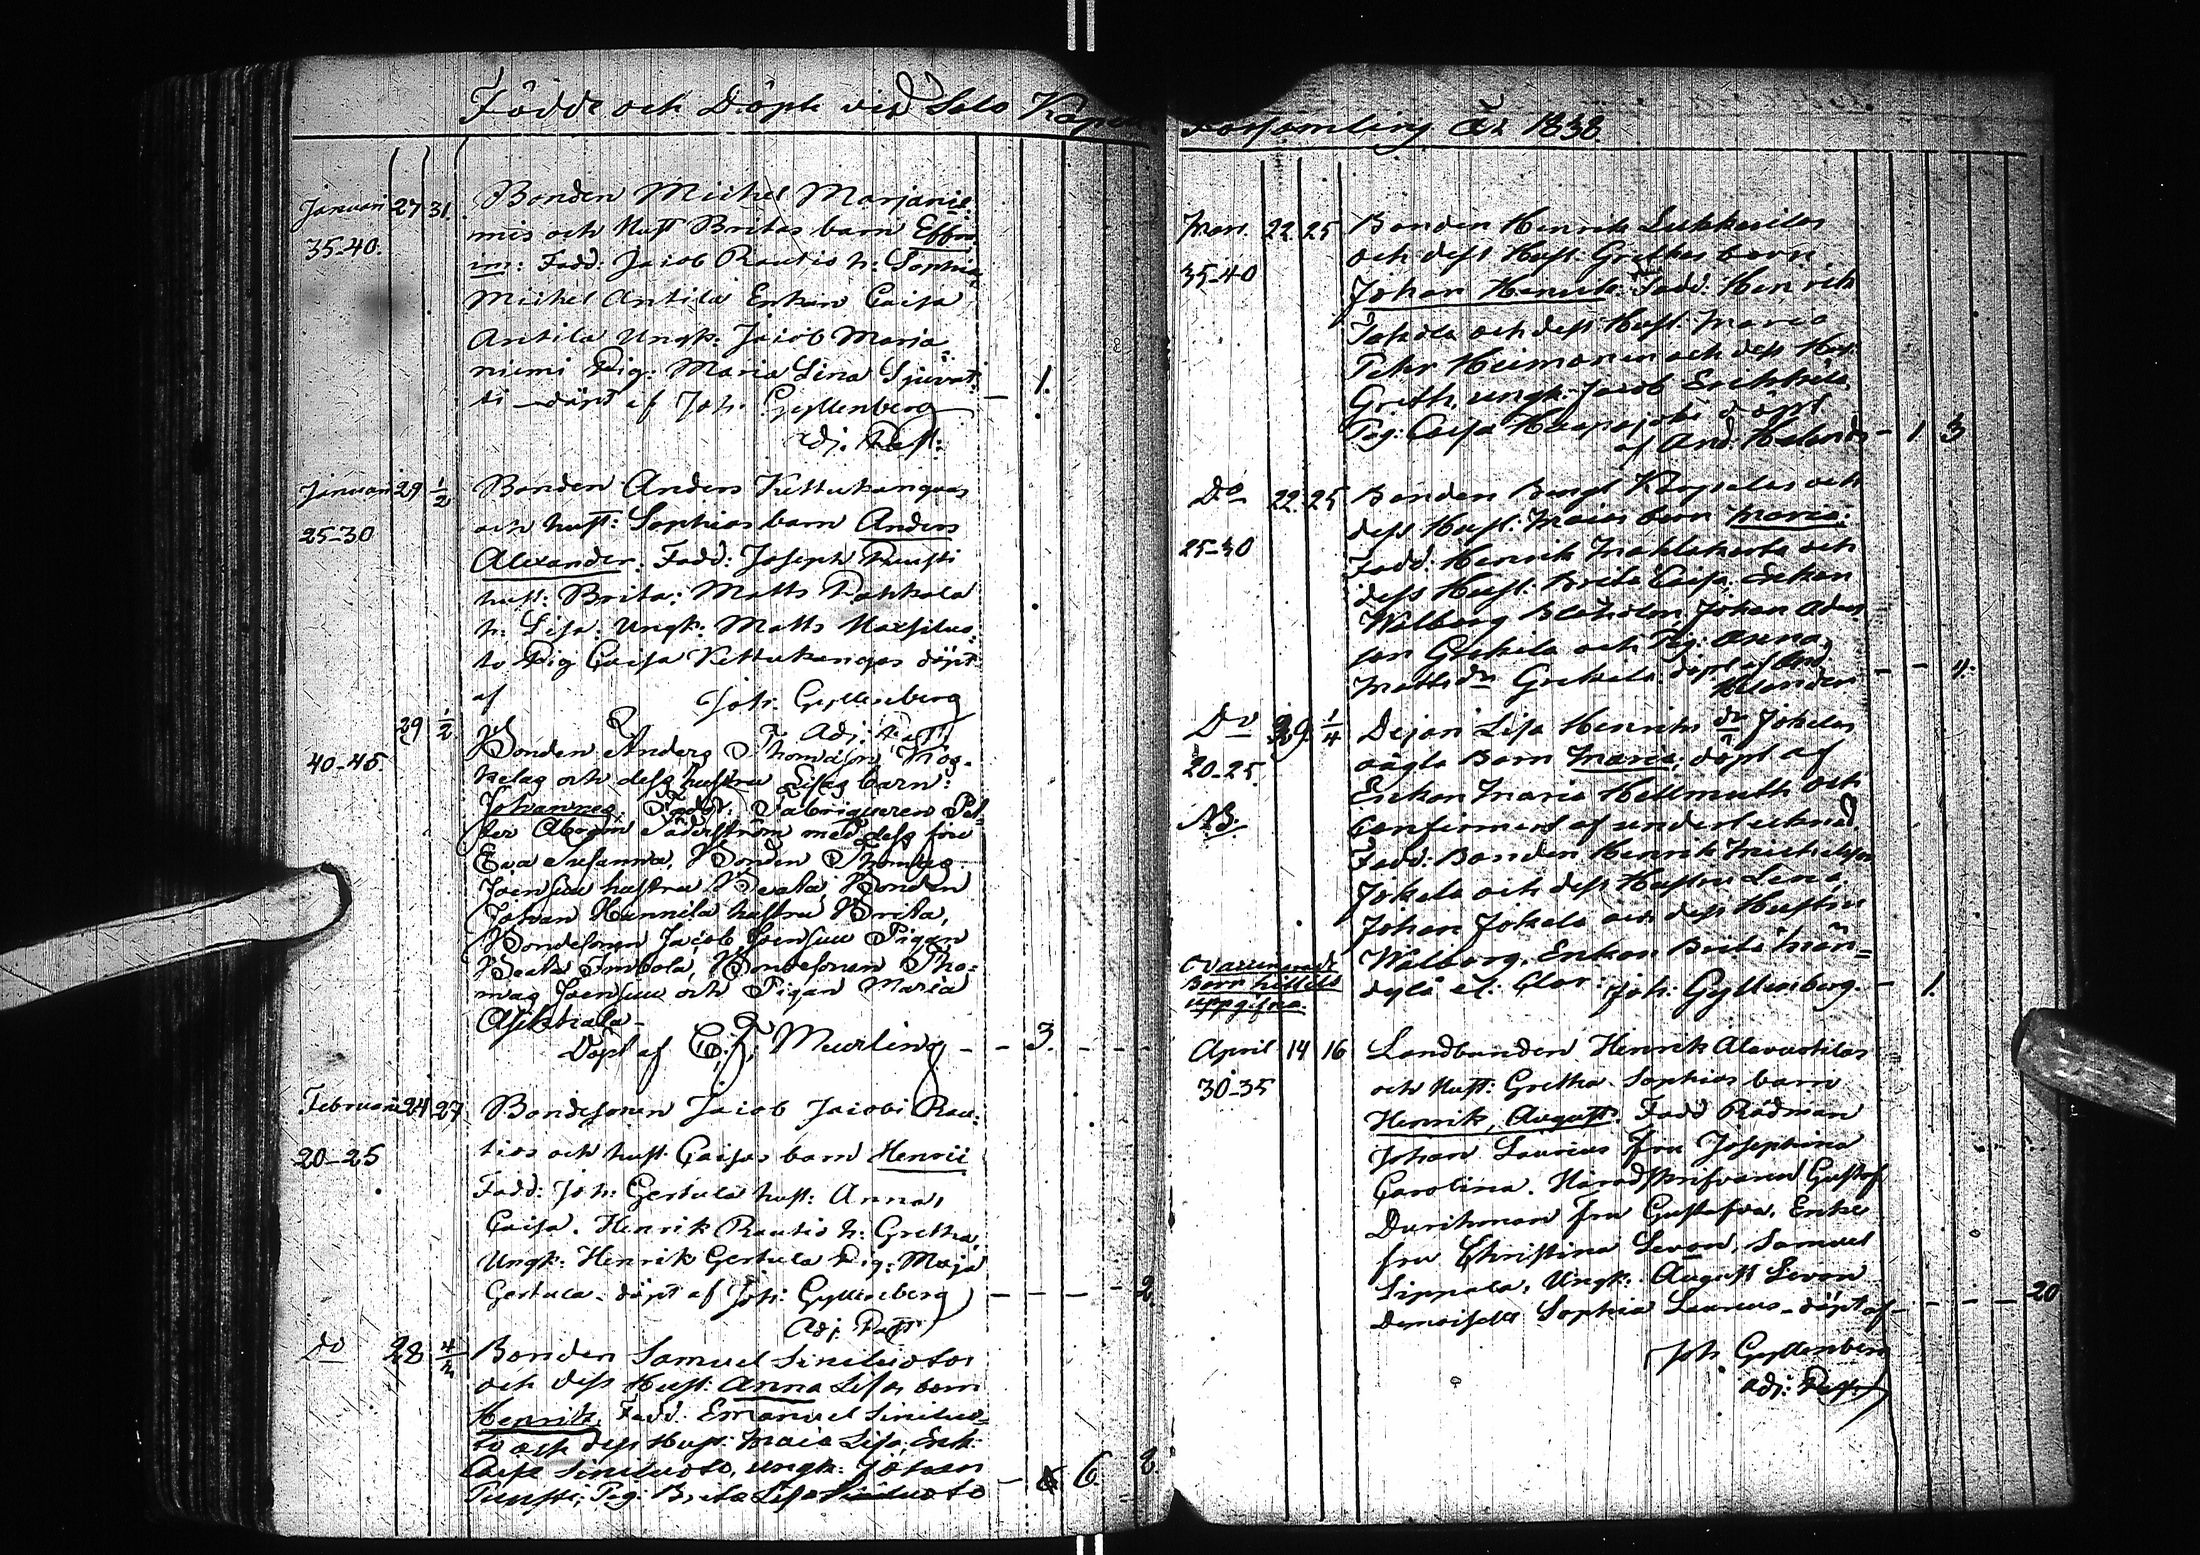 Födde och Döpte vid Salo Kapell
Församling År 1838.
Januari 27 31. Bonden Michel Marjanie-
35-40. mis och Hust Britas barn
Fadd: Jacob Rautio h: Sophia
Michel Antila Enkan Caisa
Antila Ungk: Jacob Marja
niemi Pig: Maria Lisa
döpt af Joh. Gyllenberg – 1.
Adj. Past:
Januari 29 1/2 Bonden Anders Kettukangas
25-30 och hust: Sophias barn Anders
Alexander. Fadd: Joseph
hust: Brita: Matts Pahkala
h: Lisa: Ungk: Matts
to Pig Caisa Kettukangas döpt
af Joh. Gyllenberg
Adj: Past:
29 1/2 Bonden Anders Thomasson
40-45. och dess hustru Lisas barn:
Johannes. Fadd: Fabriqueren Pet-
ter Abram Söderström med dess fru
Eva Susanna, Bonden Thomas
Joensuu hustru Beata, Bonden
Johan Hannila hustru Brita,
Bondesonen Jacob Joensuu Pigan
Beata Junttola, Bondesonen Tho-
mas Joensuu och Pigan Maria
Döpt af C. F. Meurling – – 3.
Februari 24 27. Bondesonen Jacob Jacobs Rau-
20-25 tios och hust. Caisas barn Henric
Fadd: Joh: Gertula hust: Anna,
Caisa. Henrik Rautio h: Gretha,
Ungk: Henrik Gertula Pig: Maja
Gertula – döpt af Joh: Gyllenberg – – – 2.
Adj: Past
Do 28 4/4 Bonden Samuel Siniluotos
och dess Hust: Anna Lisas barn
Henrik. Fadd. Emanuel Siniluo-
to och dess Hust: Maia Lisa, Enk:
Caisa Siniluoto, ungk: Johan
Pig: Brita Lisa Siniluoto – 6. 2.
Mars. 22. 25 Bonden Henrik
35-40 och dess Hust: Grethas barn
Johan Henrik. Fadd: Henrich
Jokela och dess Hust: Maria
Pehr Heimonen och dess Hust:
Greth, ungk: Jacob Erikkilä
Pig: Caisa Haapajoki döpt
af And. Helander – 1. 3
Do 22. 25 Bonden Bengt och
25-30 dess Hust: Maias barn Maria:
Fadd: Henrik och
dess Hust. Brita Caisa. Enkan
Walborg Johan Adams
son Grekilä och Pig: Anna
Matts dr Grekilä döpt af And.
Helander – – 4.
Do 29. 1/4 Dejan Lisa Henriks dr Jokelas
20-25 oägta Barn Maria, döpt af
NB. Enkan Maria Hellmuth och
Confirmerat af undertecknad
Fadd: Bonden Henrik Michelsson
Jokela och dess Hustru Lena,
Johan Jokela och dess Hustru
Walborg. Enkan Brita Män-
dylä et: Clar: Joh: Gyllenberg – 1.
Barn hittills
uppgifna.
April 14 16 Landbonden Henrik Alavuotilas
30-35 och Hust: Gretha Sophias barn
Henrik, August. Fadd Rådman
Johan Laurius fru Josephina
Carolina. Häradsskrifvaren Gustaf
Durchman fru Gustafva. Enke
fru Christina Levon, Samuel
Sippala, Ungk: August Levon
Demoiselle Sophia Laurius – döpt af – – – – 20
Joh. Gyllenberg
adj: Past: